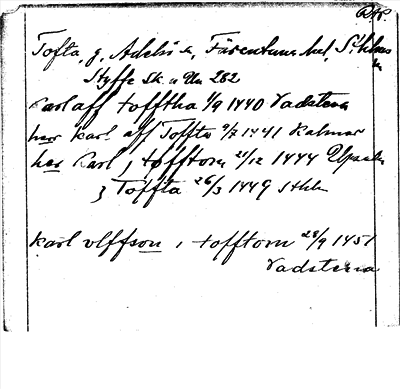 Tofta, g. Adelsö sn, Färentuna hd, Sthlms
Styffe Sk. u Un 282
Karl aff tofftha 1/9 1440 Vadstena
her Karl aff Toffta 9/7 1441 Kalmar
her Karl j tofftom 21/12 1444 Upsala
j Toffta 26/3 1449 Sthlm
Karl vlffson i tofftom 28/9 1451
Vadstena